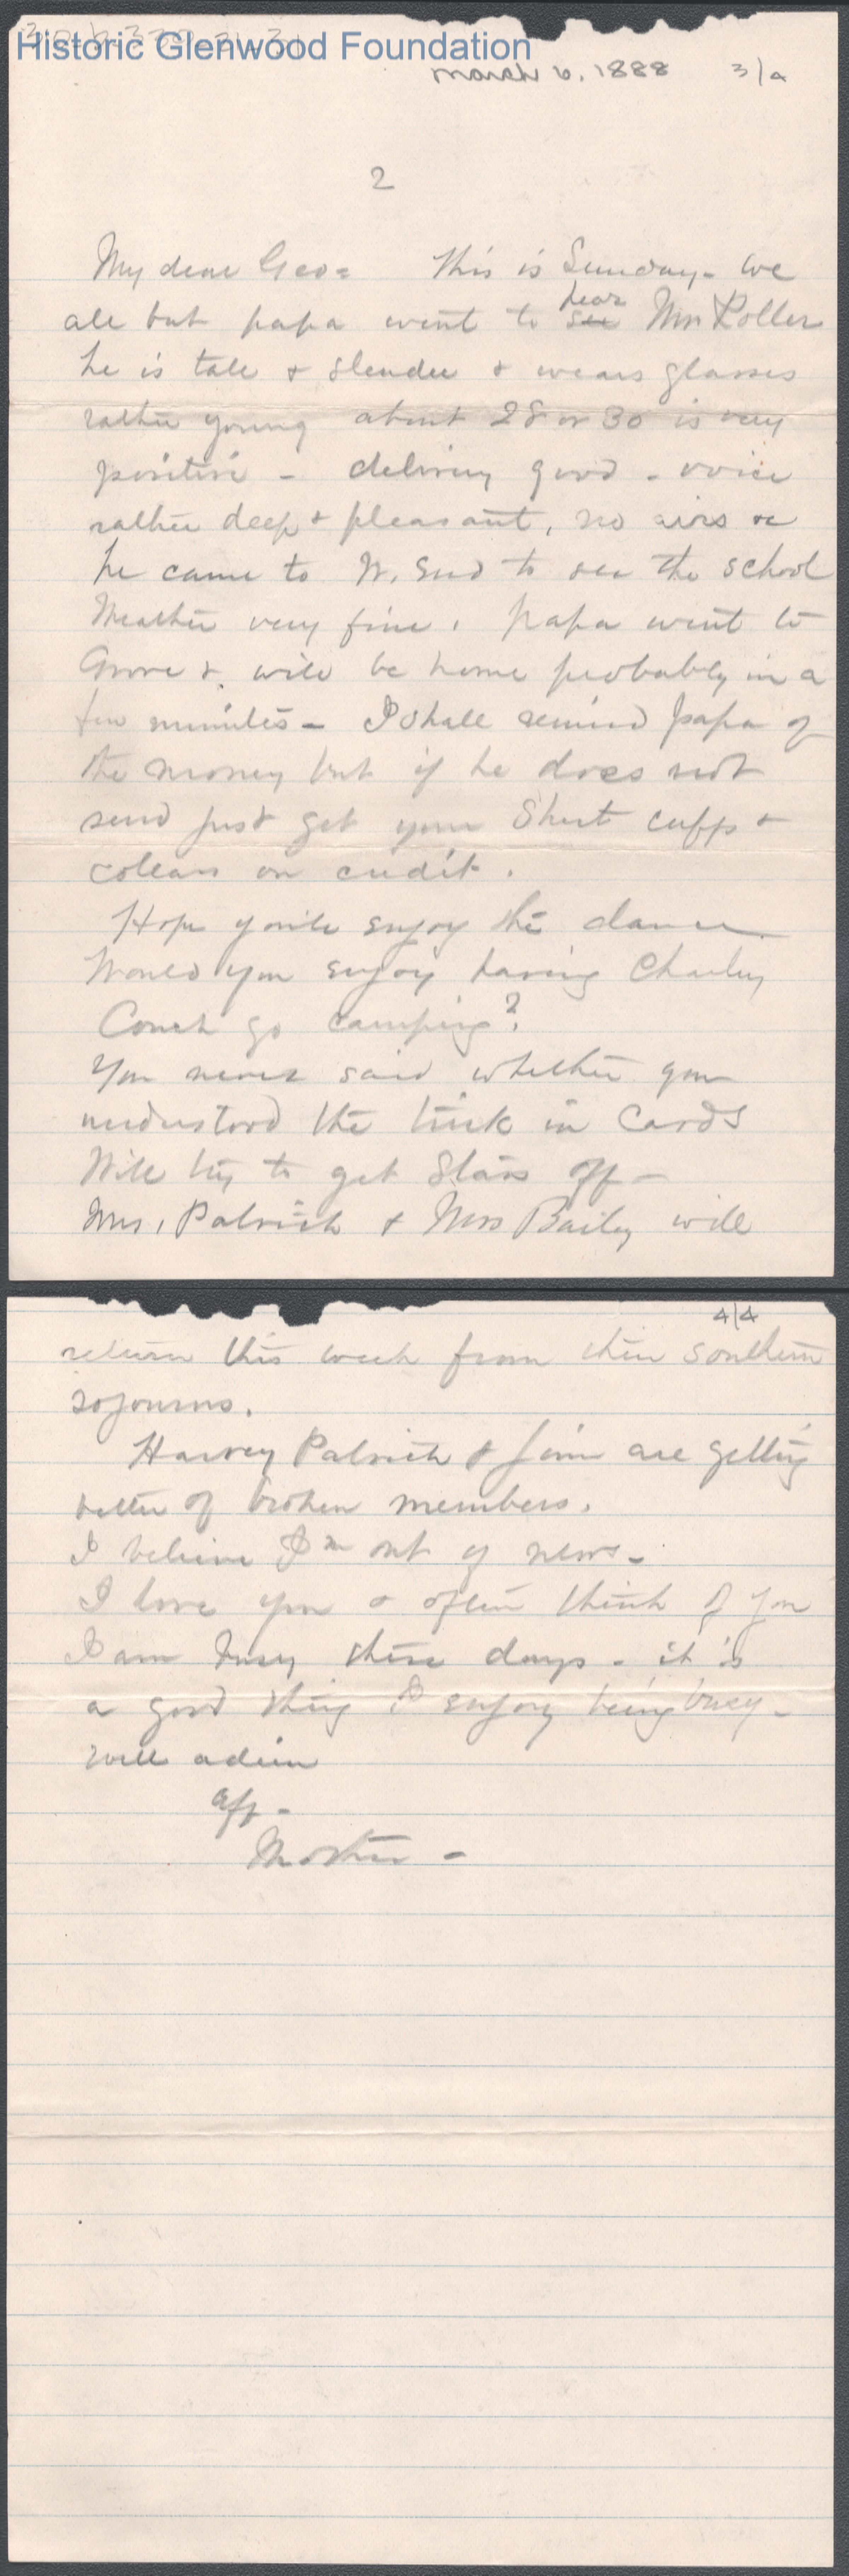 Historic Glenwood Foundation
March 6, 1888 3/4
2
My dear Geo= This is Sunday - We
all but papa went to see hear Mr. Roller
he is tall & slender & wears glasses
rather young about 28 or 30 is very
positive - delivery good - voice
rather deep & pleasant, no airs &c
he came to W. End to see the school
Weather very fine, papa went to
Grove & will be home probably in a
few minutes - I shall remind papa of
the money but if he does not
send just get your Shirt cuffs &
collars on credit.
Hope you'll enjoy the dance
Would you enjoy having Charley
Couch go camping?
You never said whether you
understood the trick in Cards
Will try to get off -
Mrs. Patrick & Mrs Bailey will
4/4
return this week from their southern
sojourns.
Harvey Patrick & Jim are getting
better of broken members.
I believe I'm out of news -
I love you & often think of you
I am busy these days - it is
a good thing I enjoy being busy -
well adieu
Aff -
Mother -